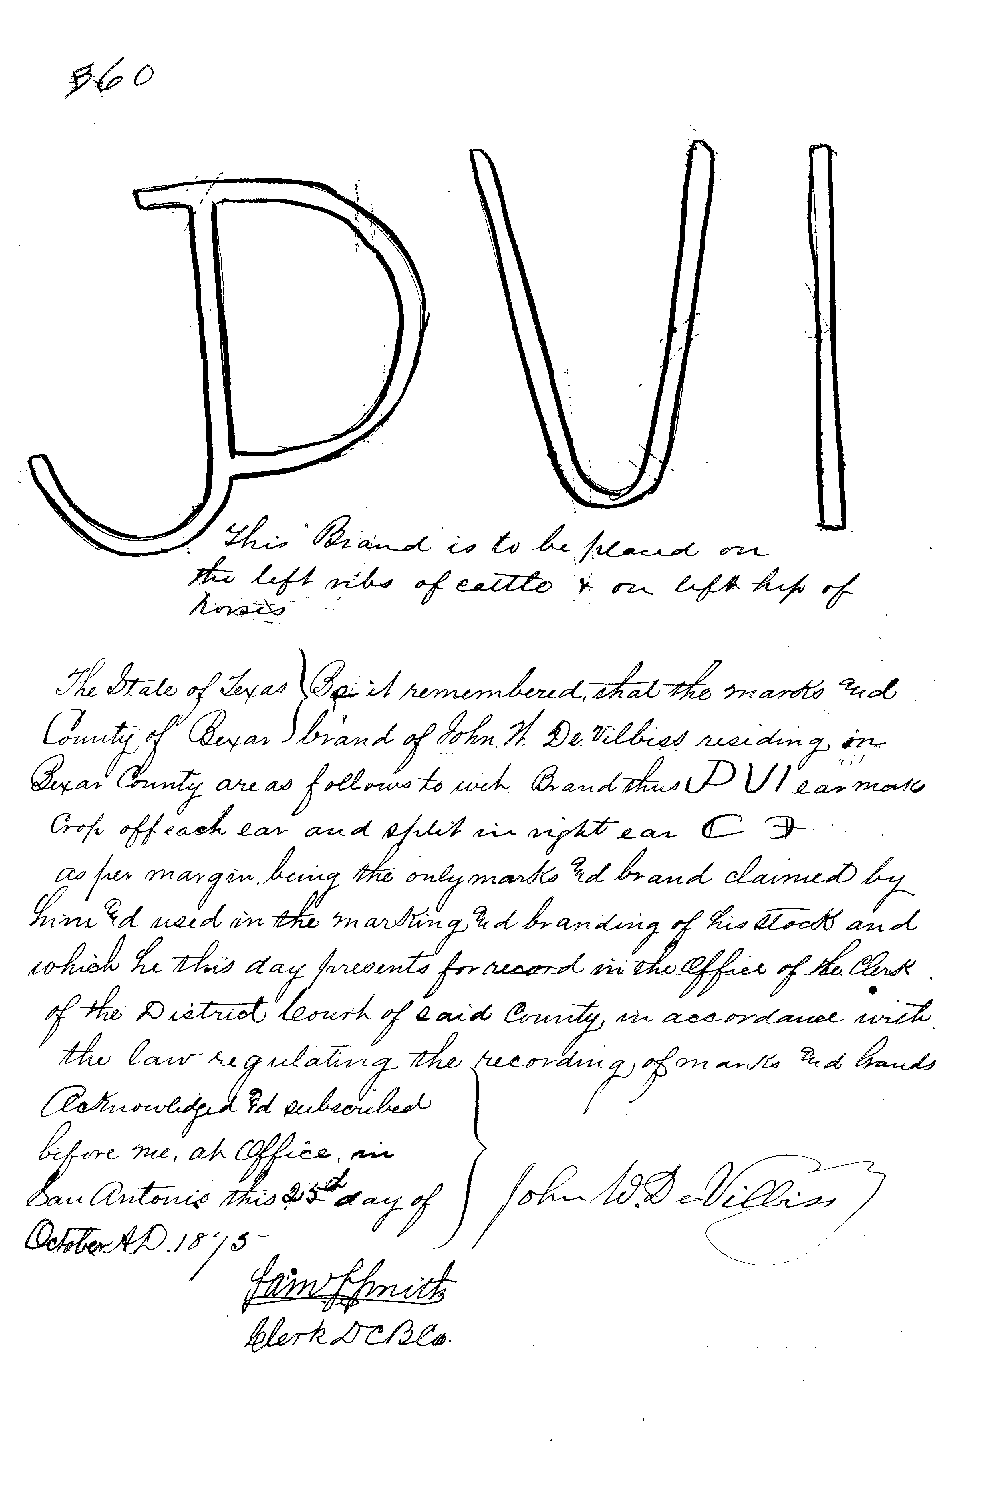 360
JDVI
This Brand is to be placed on
the left ribs of cattle & on left hip of
horses
The State of Texas } Be it remembered, that the marks and
County of Bexar } brand of John W. De Vilbiss residing in
Bexar County are as follows to wit. Brand thus JDVI ear mark
Crop off each ear and split in right ear
as per margin, being the only marks and brand claimed by
him and used in the marking and branding of his stock and
which he this day presents for record in the Office of the Clerk
of the District Court of said County, in accordance with
the law regulating the recording of marks and brands
Acknowledged and subscribed
before me, at Office, in
San Antonio this 25th day of
October A.D. 1875
John W. DeVilbiss
Sam S Smith
Clerk D C B Co.